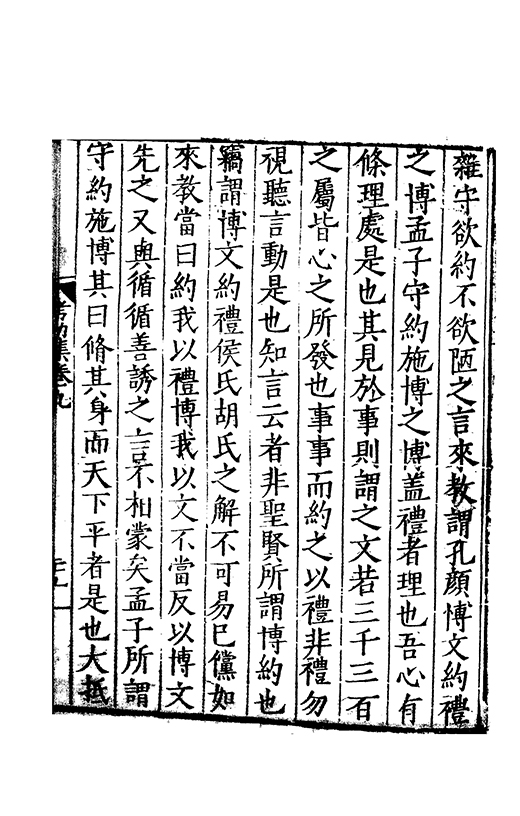 雜守欲約不欲陋之言來敎謂孔顔博文約禮
之博孟子守約施博之博蓋禮者理也吾心有
條理處是也其見於事則謂之文若三千三百
之屬皆心之所發也事事而約之以禮非禮勿
視聽言動是也知言云者非聖賢所謂博約也
竊謂博文約禮侯氏胡氏之解不可易已儻如
來敎當曰約我以禮博我以文不當反以博文
先之又與循循善誘之言不相蒙矣孟子所謂
守約施博其曰脩其身而天下平者是也大抵
集卷九